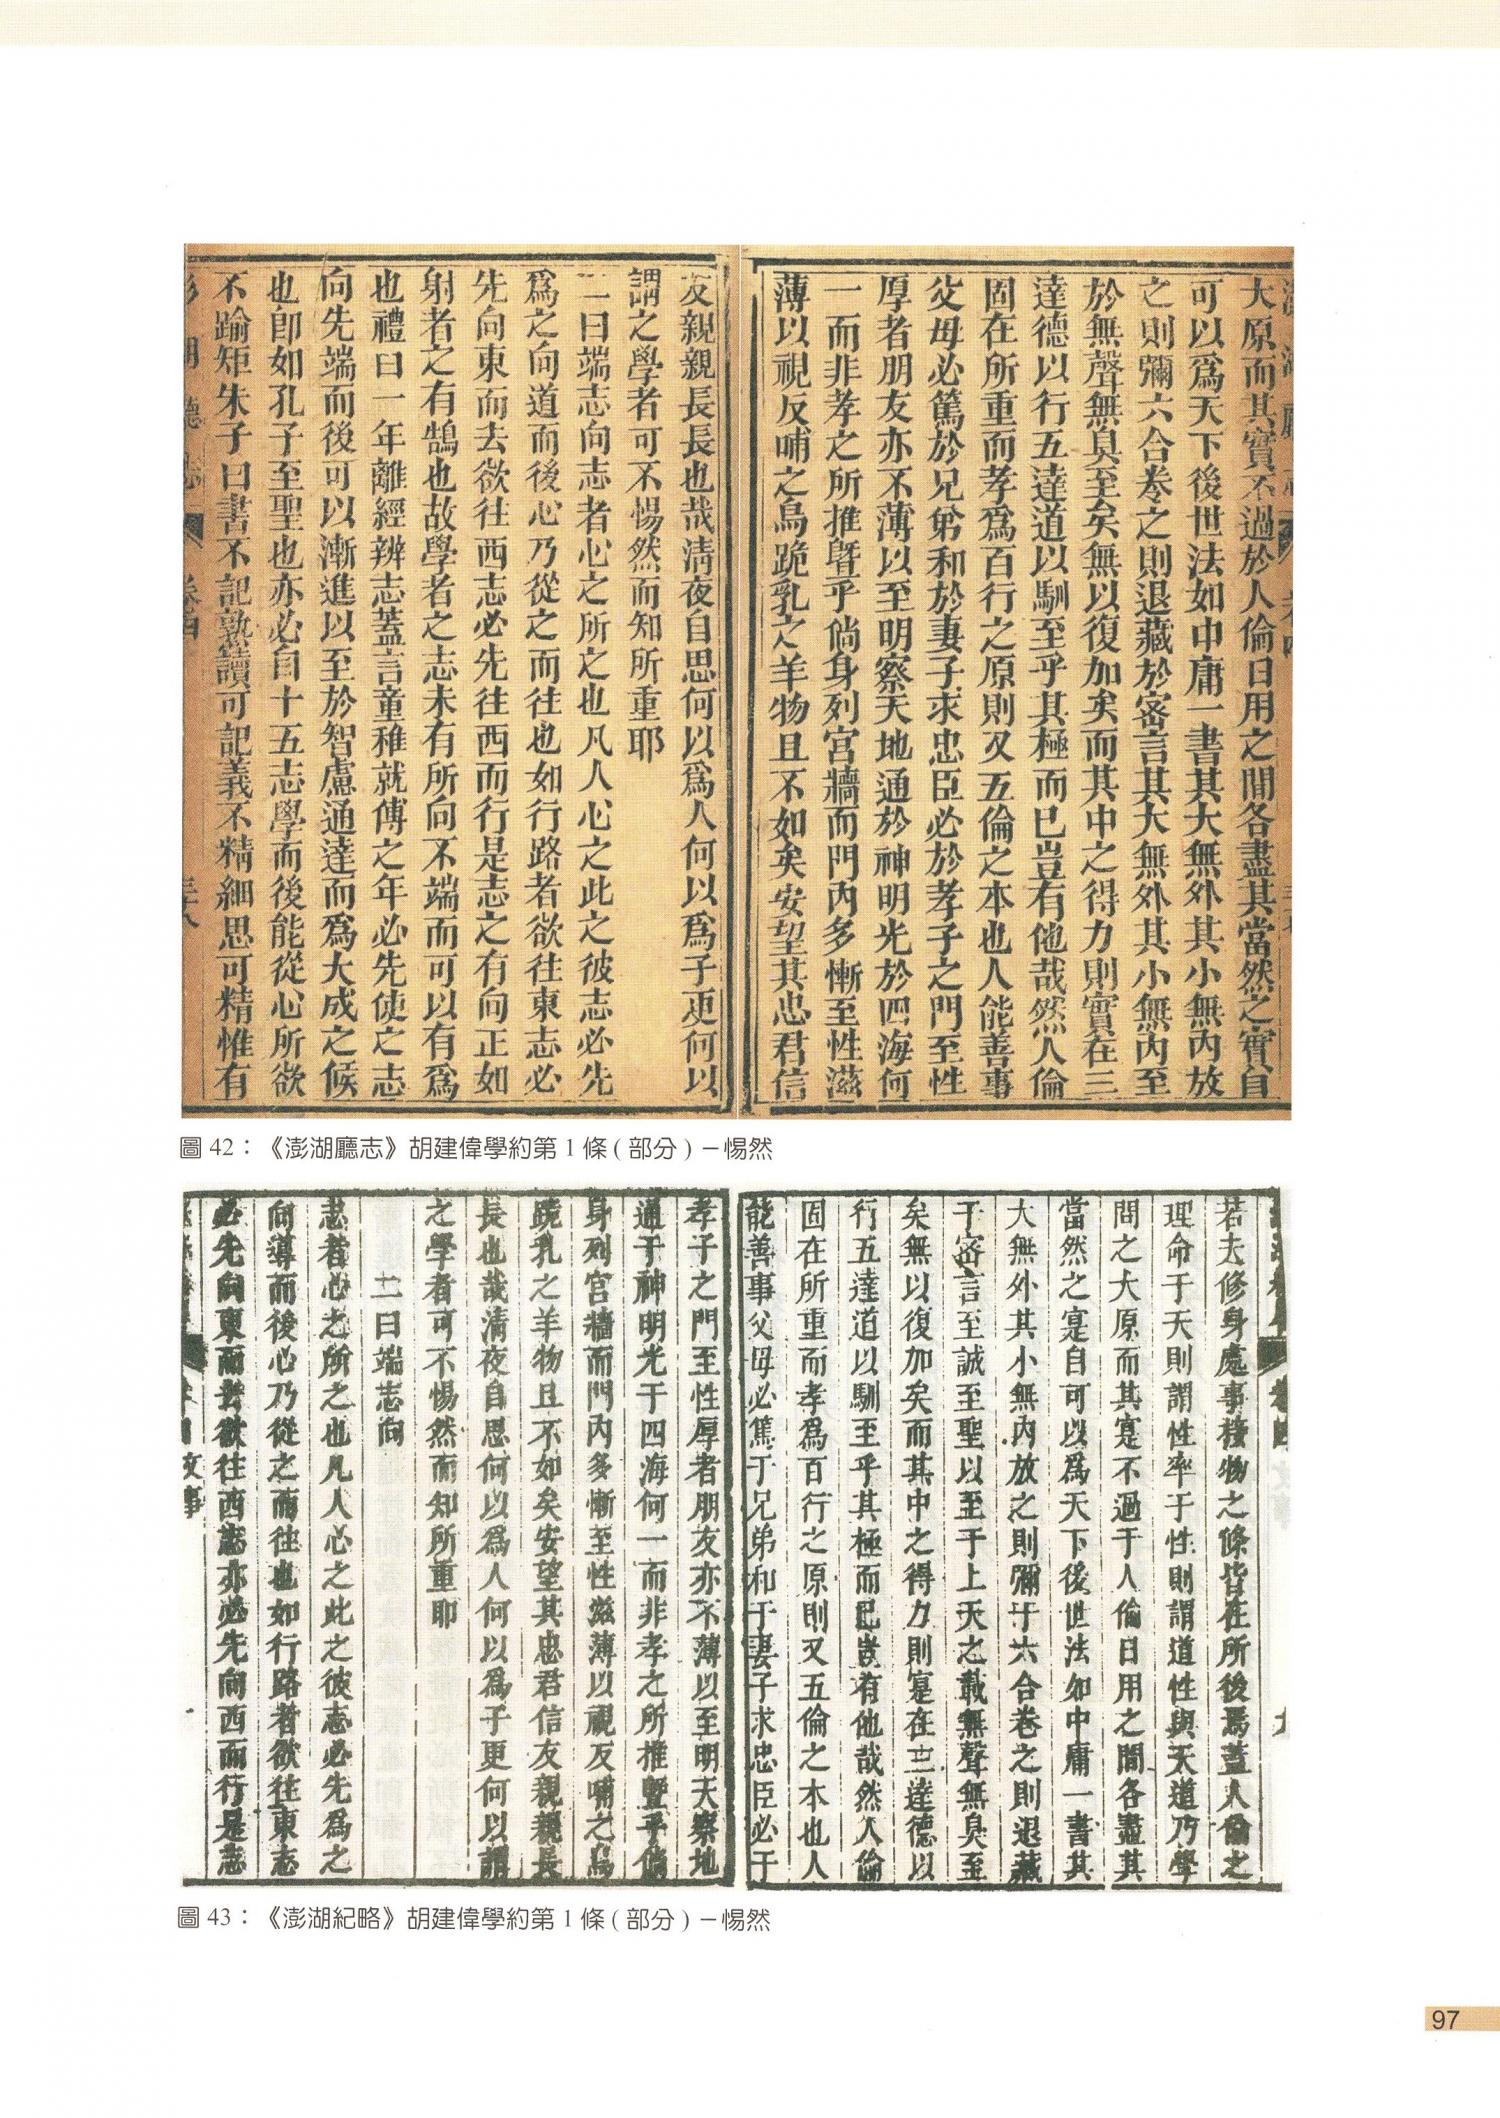 大原而其實不過於人倫日用之間各盡其當然之實自
可以爲天下後世法如中庸一書其大無外其小無內放
之則彌六合卷之則退藏於密言其大無外其小無內至
於無聲無臭至矣無以復加矣而其中之得力則實在三
達德以行五達道以馴至乎其極而已豈有他哉然人倫
固在所重而孝爲百行之原則又五倫之本也人能善事
父母必篤於兄弟和於妻子求忠臣必於孝子之門至性
厚者朋友亦不薄以至明察天地通於神明光於四海何
一而非孝之所推暨乎倘身列宮牆而門內多慚至性滋
薄以視反哺之烏跪乳之羊物且不如矣安望其忠君信
友親親長長也哉清夜自思何以爲人何以爲子更何以
謂之學者可不惕然而知所重耶
一曰端志向志者心之所之也凡人心之此之彼志必先
爲之向道而後心乃從之而往也如行路者欲往東志必
先向東而去欲往西志必先往西而行是志之有向正如
射者之有鵠也故學者之志未有所向不端而可以有爲
也禮曰一年離經辨志蓋言童稚就傅之年必先使之志
向先端而後可以漸進以至於智慮通達而爲大成之候
也卽如孔子至聖也亦必自十五志學而後能從心所欲
不踰矩朱子曰書不記熟讀可記義不精細思可精惟有
澎湖廳志 卷四 三十八
圖 42：《澎湖廳志》胡建偉學約第 1 條 ( 部分 ) －惕然
若夫修身處事接物之條皆在所後焉蓋人倫之
理命于天則謂性率于性則謂道性與天道乃學
問之大原而其寔不過于人倫日用之間各盡其
當然之寔自可以爲天下後世法如中庸一書其
大無外其小無內放之則彌于六合卷之則退藏
于密言至誠至聖以至于上天之載無聲無臭至
矣無以復加矣而其中之得力則寔在三達德以
行五達道以馴至乎其極而已豈有他哉然人倫
固在所重而孝爲百行之原則又五倫之本也人
能善事父母必篤于兄弟和于妻子求忠臣必于
孝子之門至性厚者朋友亦不薄以至明天察地
通于神明光于四海何一而非孝之所推暨乎倘
身列宮牆而門內多慚至性滋薄以視反哺之烏
跪乳之羊物且不如矣安望其忠君信友親親長
長也哉清夜自思何以爲人何以爲子更何以謂
之學者可不惕然而知所重耶
一曰端志向
志者心之所之也凡人心之此之彼志必先爲之
向導而後心乃從之而往也如行路者欲往東志
必先向東而去欲往西志亦必先向西而行是志
圖 43：《澎湖紀略》胡建偉學約第 1 條 ( 部分 ) －惕然
97